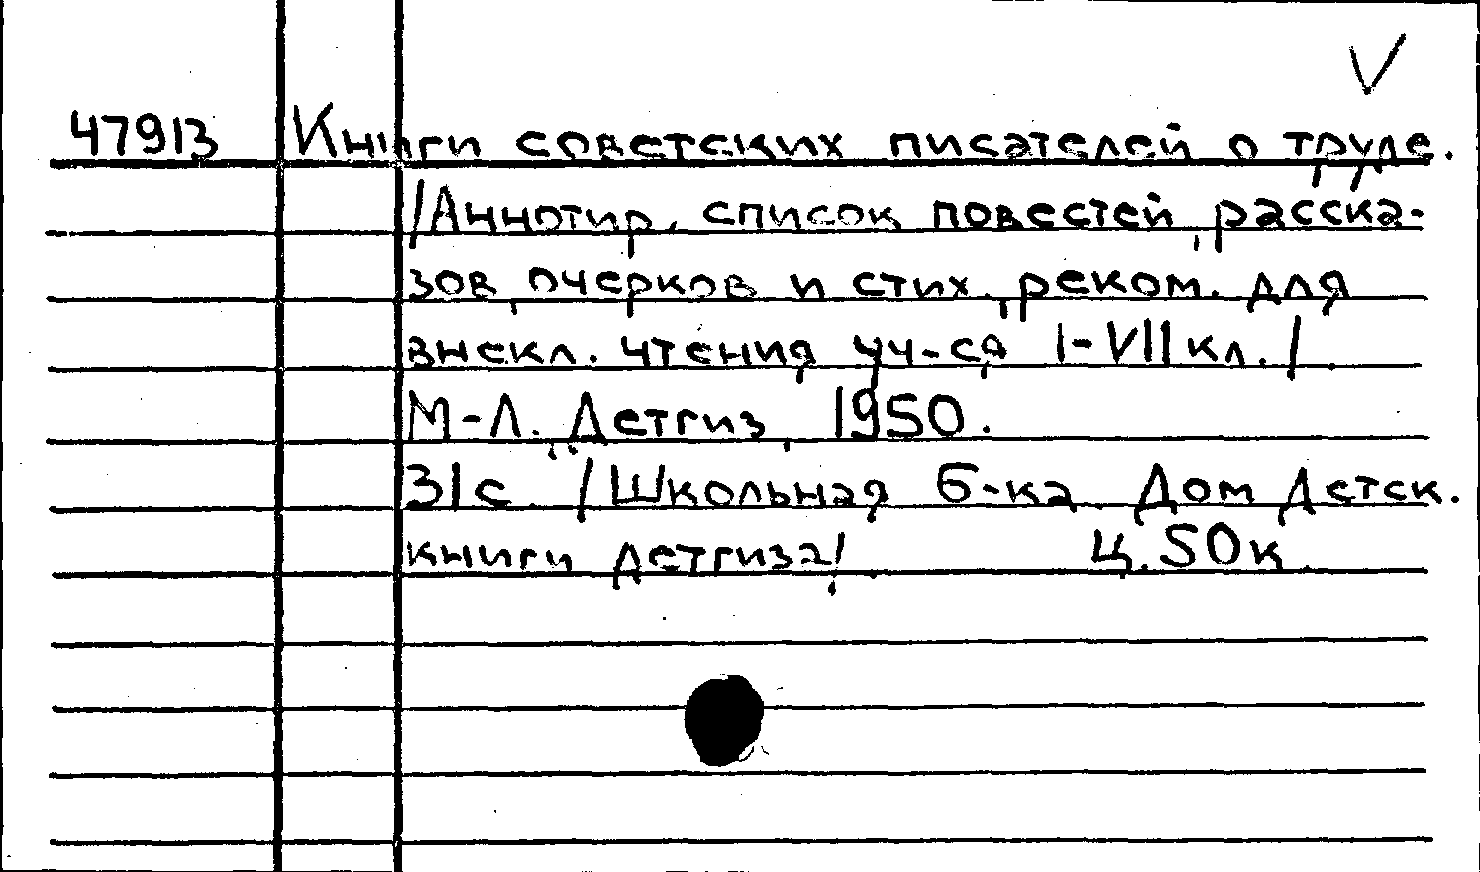 V
47913 Книги советских писателей о труде.
/Аннотир. список повестей, расска-
зов, очерков и стих., реком. для
внекл. чтения уч-ся I-VII кл./.
М-Л., Детгиз, 1950.
31с. /Школьная б-ка. Дом детск.
книги Детгиза/. Ц. 50к.